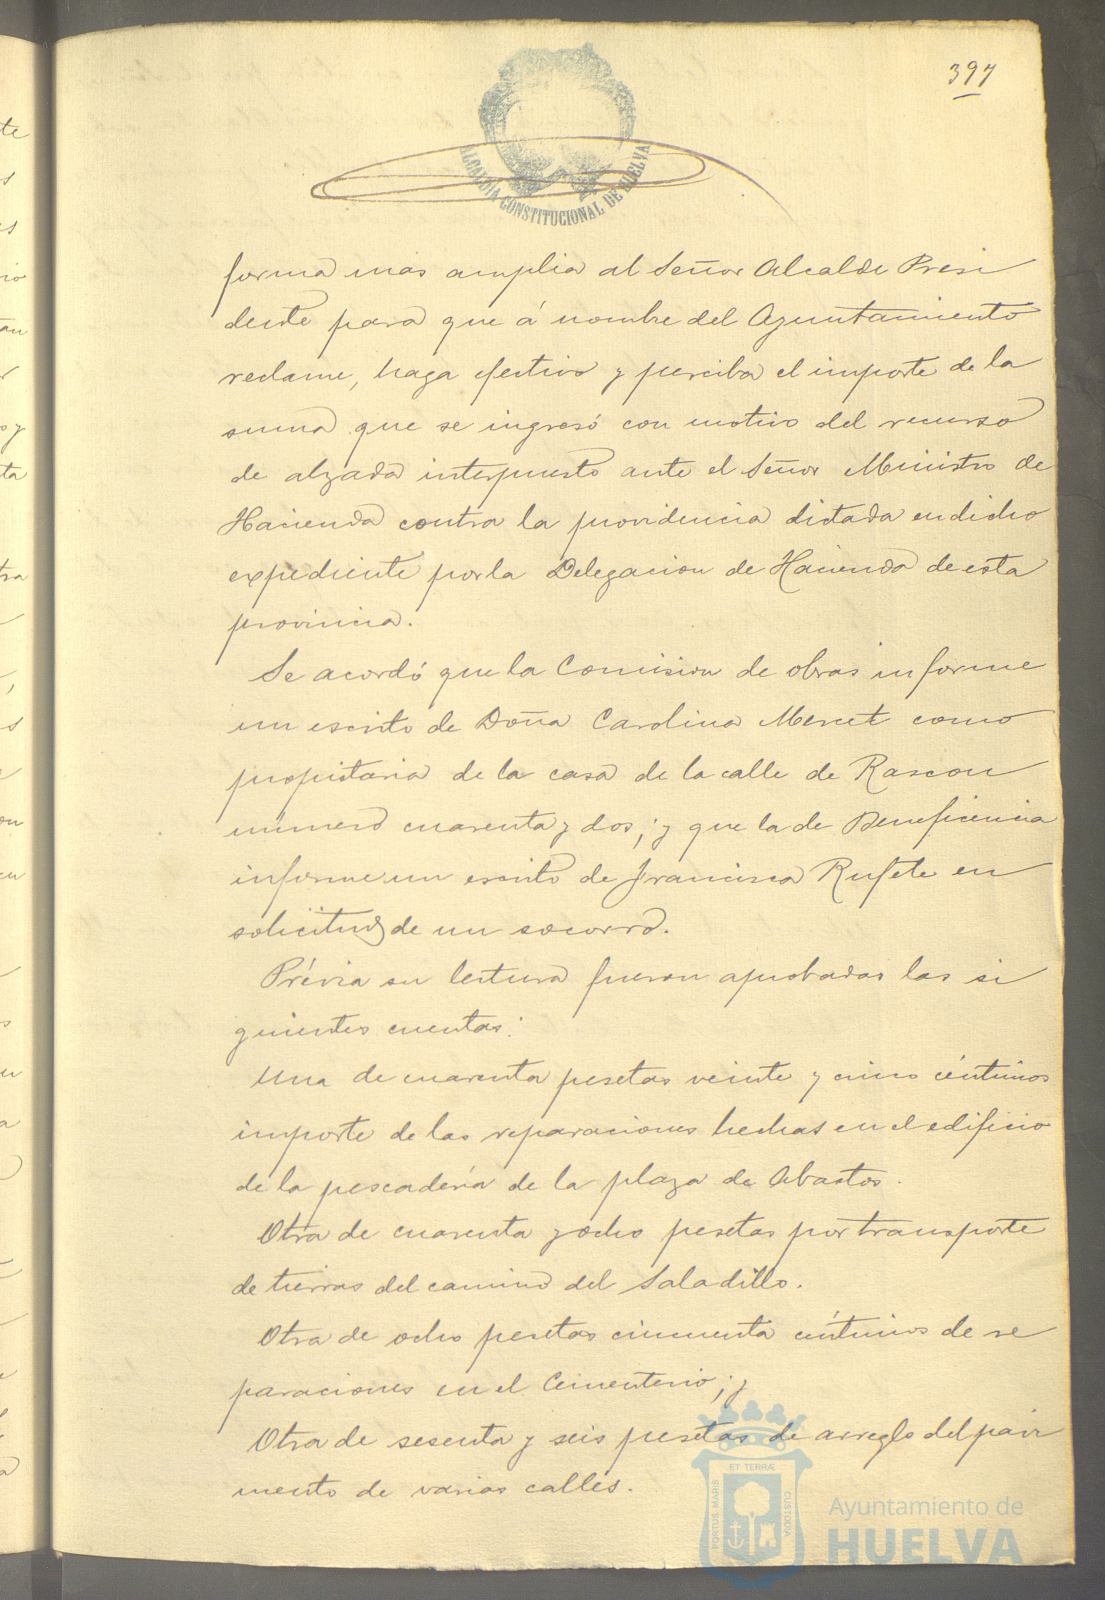 397
ALCALDIA CONSTITUCIONAL DE HUELVA
forma mas amplia al Señor Alcalde Presi
dente para que á nombre del Ayuntamiento
reclame, haga efectivo y perciba el importe de la
suma que se ingresó con motivo del recurso
de alzada interpuesto ante el Señor Ministro de
Hacienda contra la providencia dictada en dicho
expediente por la Delegacion de Hacienda de esta
provincia.
Se acordó que la Comision de obras informe
un escrito de Doña Carolina Mercet como
propietaria de la casa de la calle de Rascon
número cuarenta y dos; y que la de Beneficencia
informe un escrito de Francisca Rufete en
solicitud de un socorro.
Prévia su lectura fueron aprobadas las si
guientes cuentas:
Una de cuarenta pesetas veinte y cinco céntimos
importe de las reparaciones hechas en el edificio
de la pescadería de la plaza de Abastos.
Otra de cuarenta y ocho pesetas por transporte
de tierras del camino del Saladillo.
Otra de ocho pesetas cincuenta céntimos de re
paraciones en el Cementerio; y
Otra de sesenta y seis pesetas de arreglo del pavi
mento de varias calles.
PORTUS MARIS ET TERRÆ CUSTODIA
Ayuntamiento de
HUELVA